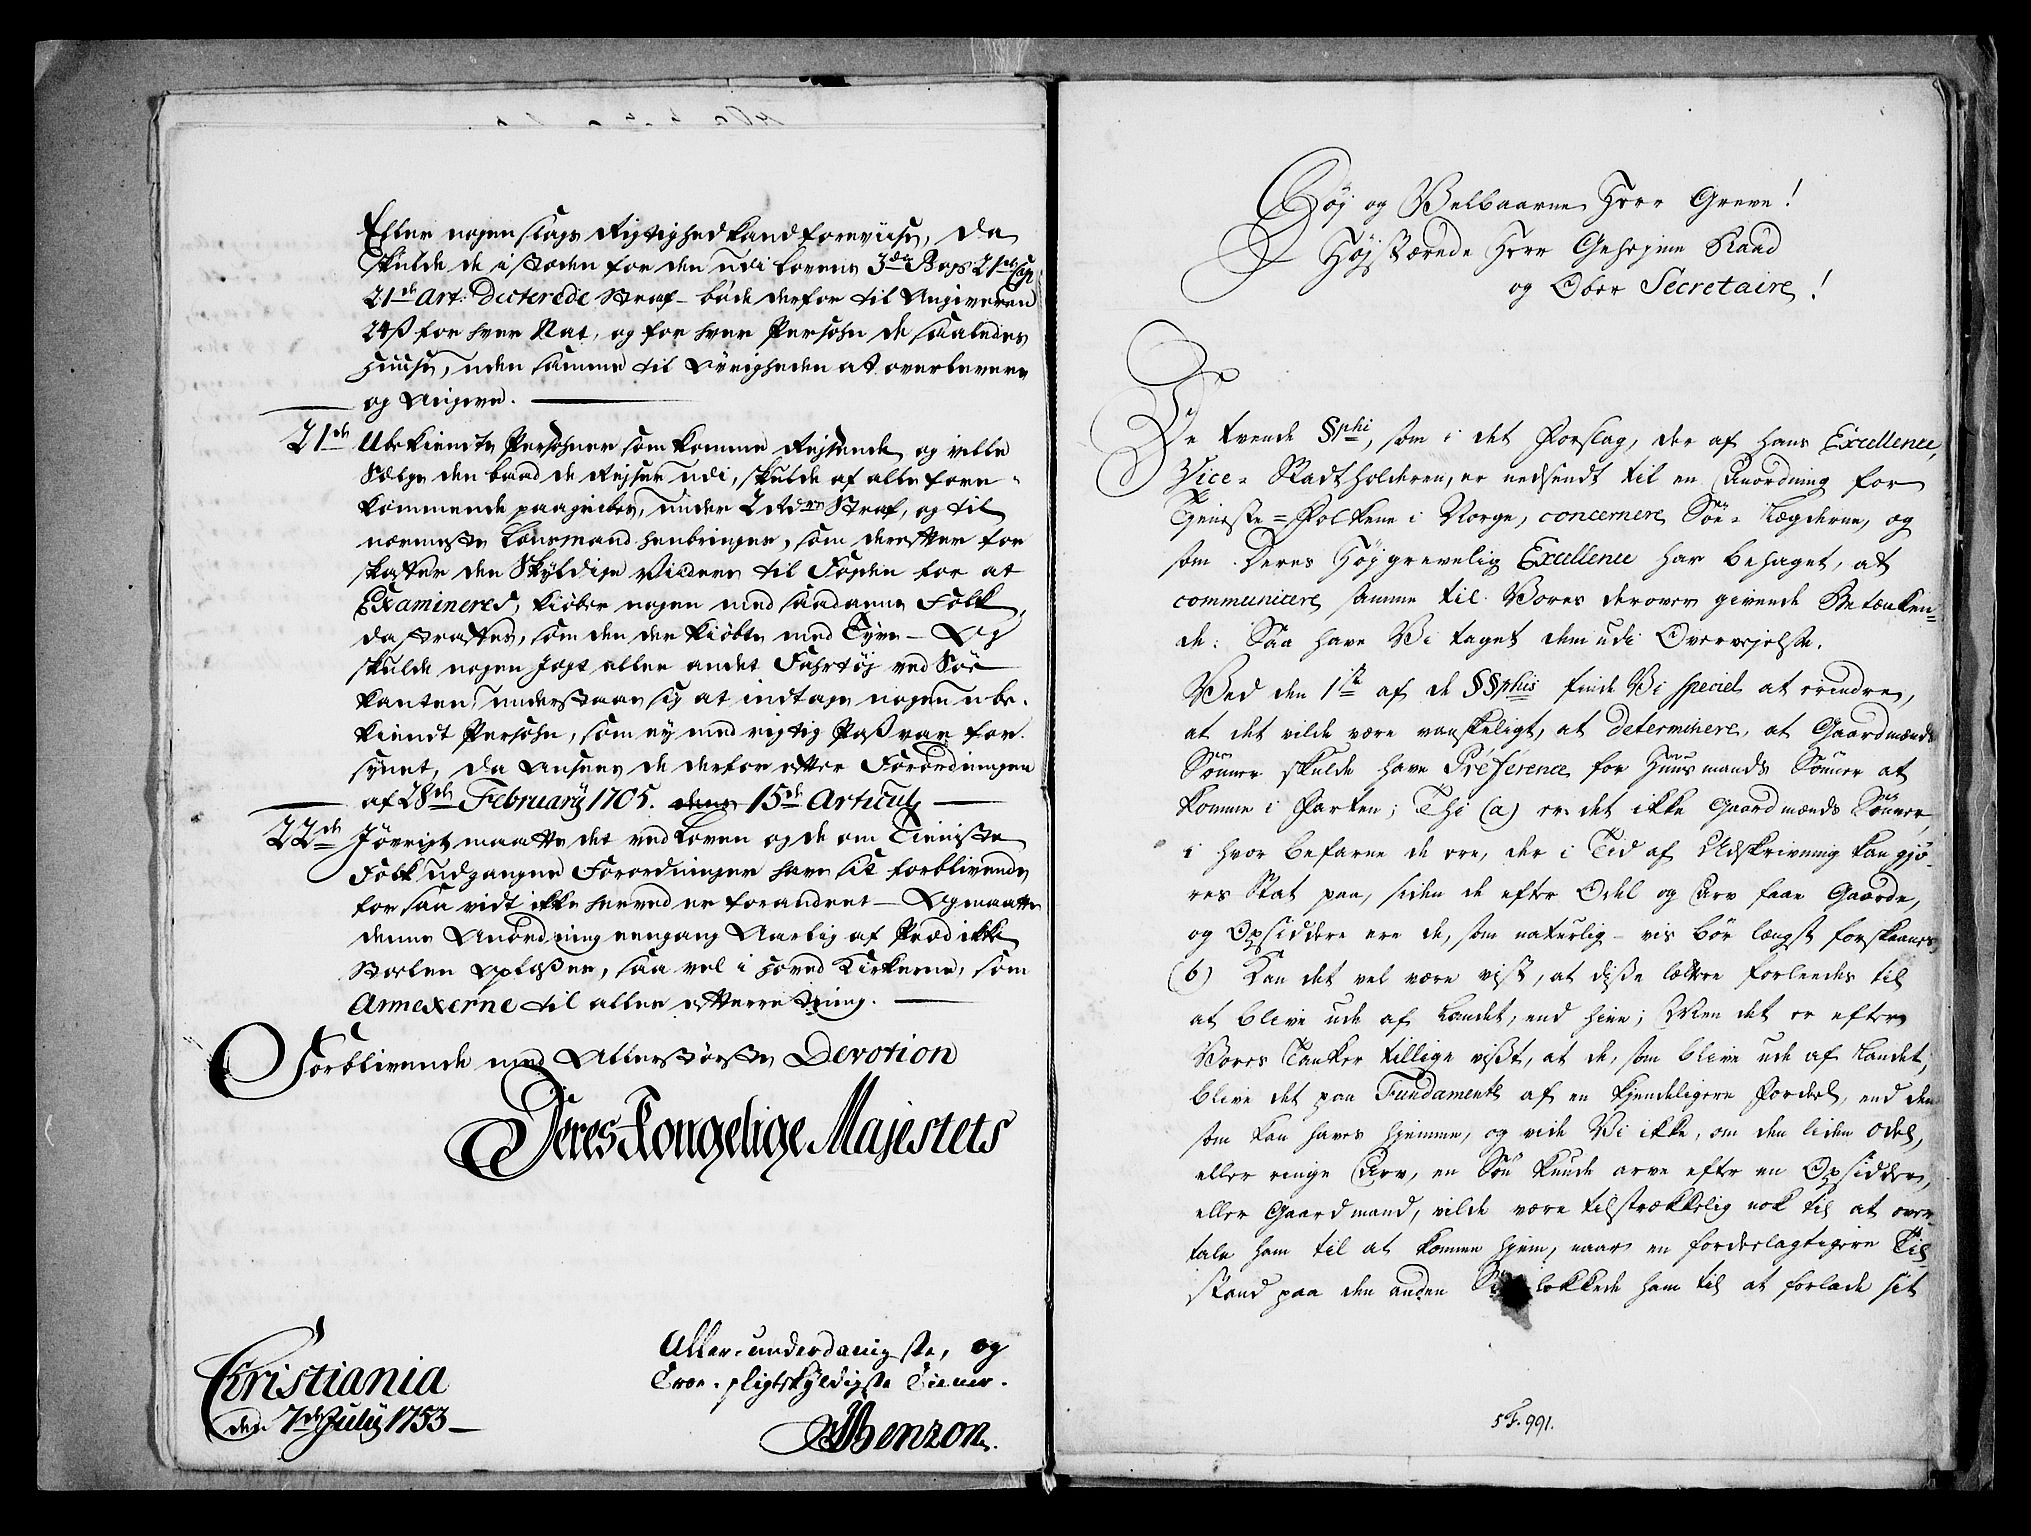 Eller nogen slags Rigtighed kand foreviise, da
skulde de i stæden for den udi Lovens 3die Bogs 21de Cap
21de Art: Dicterede straf – bøde derfor til Angiveren
24ß for hver Nat, og for hver Persohn de saaledes
Huuse, uden samme til Øvrigheden at overlevere
og Angive.
21de Ubekiendte Persohner som komme Rejsende og ville
Sælge den baad de Rejser udi, skulde af alle fore-
kommende paagribes, under 2 Rdrs Straf, og til
nærmeste Lensmand henbringes, som derefter for
skaffer den Skyldige Videre til Fogden for at
Examineres, kiøber nogen med saadanne Folk,
da straffes, som den der kiøbte med Tyve – Og
skulde nogen Jagt eller andet Fahrtøj ved Søe
kanten understaae sig at indtage nogen ube-
kiendt Persohn, som ej med rigtig Pass var for
synet, da Ansees de derfor efter Forordningen
af 28de February 1705. dens 15de Articul
22de Jøvrigt maatte det ved Loven og de om Tieniste
Folk udgangne Forordninger have sit forblivende
for saa vidt ikke herved er forandret – Og maatte
denne Anordning eengang Aarlig af Prædikke
Stoelen Oplæses, saa vel i Hoved Kirkerne, som
Annexerne til alles efterretning.
Forblivende med Allerstørste Devotion
Deres Kongelige Majestets
Aller-underdanigste, og
Troe-pligtskyldigste Tiener.
Christiania
den 7de July 1753
Benzon.
Høj og Velbaarne Herr Greve!
Højstærede Herr Gehejme Raad
og Ober Secretaire!
De tvende §phi, som i det Forslag, der af Hans Excellence,
Vice-Stadtholderen, er nedsendt til en Anordning for
Tjeneste-Folkene i Norge, concernere Søe-Lægderne, og
som Deres Højgrevelig Excellence har behaget, at
communicere samme til Vores derover givende Betænken-
de: Saa have Vi taget dem udi Overvejelse.
Ved den 1ste af de §§phis finde Vi speciel at erindre,
at det vilde være vanskeligt, at determinere, at Gaardmænds
Sønner skulde have Préférence for Huusmands Sønner at
komme i Farten; Thi (a) er det ikke Gaardmænds Sønner,
i hvor befarne de ere, der i Tid af Udskrivning kan gjø-
res Stat paa, siden de efter Odel og Arv faae Gaarde,
og Opsiddere ere de, som naturlig-vis bør længst forskaanes,
(b) Kan det vel være vist, at disse lættere forleedes til
at blive ude af Landet, end hine; Men det er efter
Vores Tanker tillige vißt, at de, som blive ude af Landet,
blive det paa Fundament af en kjendeligere Fordeel, end den
som kan haves hjemme, og vide Vi ikke, om den liden Odel,
eller ringe Arv, en Søn kunde arve efter en Opsidder,
eller Gaardmand, vilde være tilstrækkelig nok til at over-
tale ham til at komme hjem, naar en fordelagtigere Til-
stand paa den anden Side lokkede ham til at forlade sit
5F. 991.